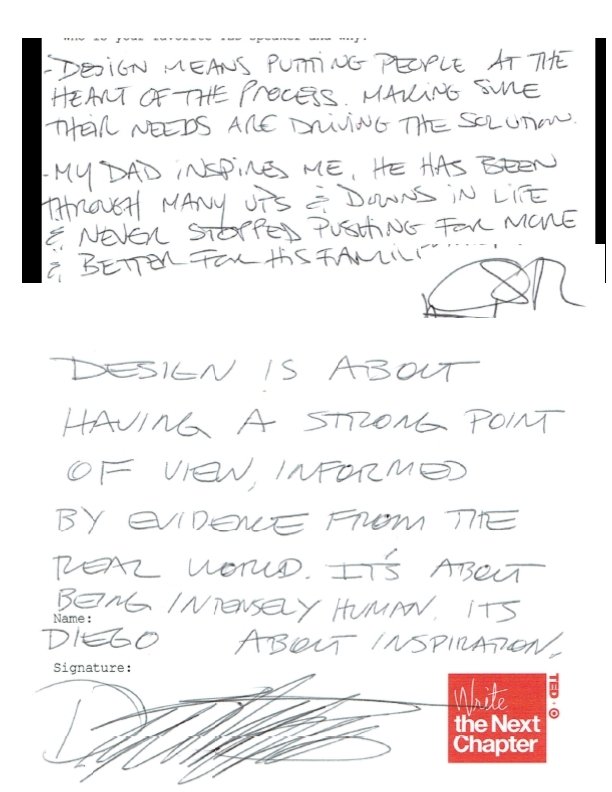 Who is your favorite TED speaker and why?
- DESIGN MEANS PUTTING PEOPLE AT THE
HEART OF THE PROCESS. MAKING SURE
THEIR NEEDS ARE DRIVING THE SOLUTION.
- MY DAD INSPIRES ME, HE HAS BEEN
THROUGH MANY UPS & DOWNS IN LIFE
& NEVER STOPPED PUSHING FOR MORE
& BETTER FOR HIS FAMILI
DESIGN IS ABOUT
HAVING A STRONG POINT
OF VIEW, INFORMED
BY EVIDENCE FROM THE
REAL WORLD. IT'S ABOUT
BEING INTENSELY HUMAN. ITS
Name:
DIEGO ABOUT INSPIRATION.
Signature:
Write
the Next
Chapter
TED